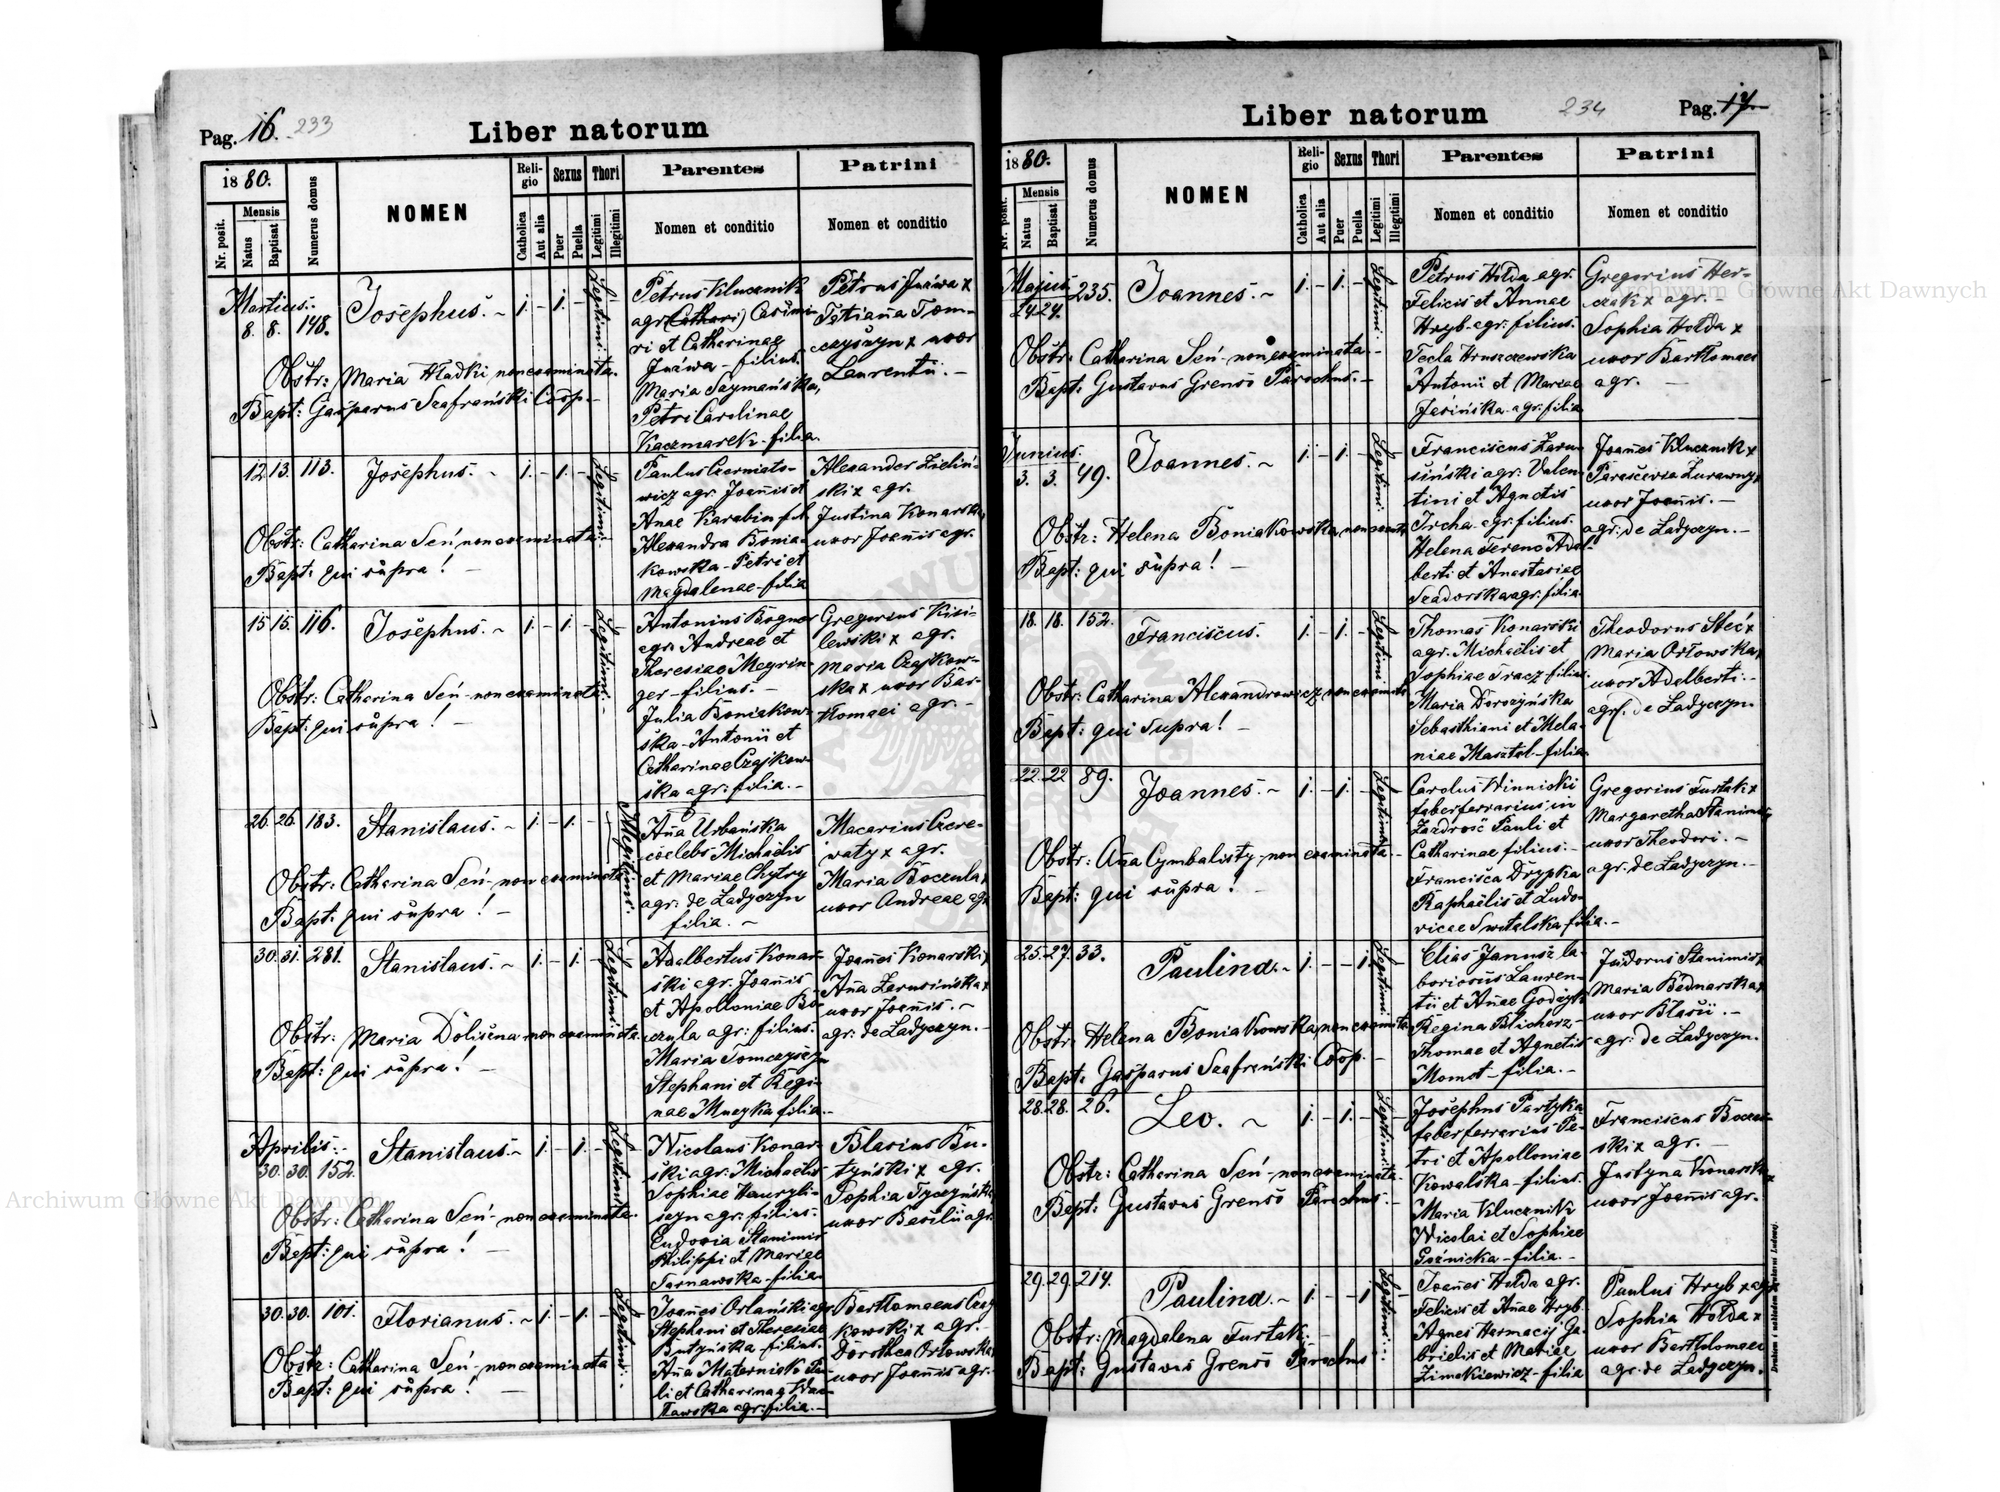 Pag. 16. 233
Liber natorum
1880.
Nr. posit.
Mensis
Natus
Baptisat
Numerus domus
NOMEN
Religio
Catholica
Aut alia
Sexus
Puer
Puella
Thori
Legitimi
Illegitimi
Parentes
Nomen et conditio
Patrini
Nomen et conditio
Martius.
8. 8. 148. Josephus. ~ 1. - 1. - Legitimi.
Obstr: Maria Hładki non examinata.
Bapt: Gasparus Szafrański Coop. -
Petrus Klucznik
agr. (Cathari) Casimi-
ri et Catharinae
filius.
Maria Szymańska,
Petri Carolinae
Kaczmarek - filia.
Petrus x
Tetianna Tom-
czyszyn x uxor
Laurentii. -
12. 13. 113. Josephus. ~ 1. - 1. - Legitimi.
Obstr: Catharina Seń non examinata.
Bapt: qui supra! -
Paulus Czerniato-
wicz agr. Joannis et
Annae Karabin fil.
Alexandra Bonia-
kowska - Petri et
Magdalenae - filia
Alexander Zieliń-
ski x agr.
Justina Konarska
uxor Joannis agr.
15. 15. 116. Josephus. ~ 1. - 1. - Legitimi.
Obstr: Catharina Seń - non examinata.
Bapt: qui supra! -
Antonius Bogner
agr. Andreae et
Theresiae Meyrin-
ger - filius. -
Julia Boniakow-
ska - Antonii et
Catharinae Czajkow-
ska agr: filia. -
Gregorius Kisi-
lewski x agr.
Maria Czajkow-
ska x uxor Bar-
tlomaei agr. -
26. 26. 183. Stanislaus. ~ 1. - 1. - Illegitimi.
Obstr: Catharina Seń - non examinata.
Bapt: qui supra! -
Anna Urbańska
coelebs Michaelis
et Mariae Chytry
agr: de Ladyczyn
filia. ~
Macarius Czere-
waty x agr.
Maria Boczula x
uxor Andreae agr.
30. 31. 281. Stanislaus. ~ 1. - 1. - Legitimi.
Obstr: Maria Dolisena non examinata.
Bapt: qui supra! -
Adalbertus Konar-
ski agr. Joannis
et Apolloniae Bo-
czula agr: filius.
Maria Tomczyszyn
Stephani et Regi-
nae Muzyka filia. -
Joannes Konarski x
Anna Zarusińska x
uxor Joannis. ~
agr: de Ladyczyn. -
Aprilis. -
30. 30. 152. Stanislaus. ~ 1. - 1. - Legitimi.
Obstr: Catharina Seń - non examinata.
Bapt: qui supra! -
Nicolaus Konar-
ski agr. Michaelis
Sophiae Hauryli-
szyn agr: filius.
Eudoxia Stanimir
Philippi et Mariae
Tarnawska - filia.
Blasius Bu-
tyński x agr.
Sophia Tyczyńska
uxor Basilii agr.
30. 30. 101. Florianus. ~ 1. - 1. - Legitimi.
Obstr: Catharina Seń - non examinata
Bapt: qui supra! -
Joannes Orlański agr.
Stephani et Theresiae
Butyńska - filius.
Anna Maternicka Pau-
li et Catharina
agr: filia. -
Bartlomaeus Czaj-
kowski x agr. -
Dorothea Orlowska
uxor Joannis agr.
Liber natorum
234
Pag. 17.
1880.
Nr. posit.
Mensis
Natus
Baptisat
Numerus domus
NOMEN
Religio
Catholica
Aut alia
Sexus
Puer
Puella
Thori
Legitimi
Illegitimi
Parentes
Nomen et conditio
Patrini
Nomen et conditio
Majus.
24. 24. 235. Joannes. ~ 1. - 1. - Legitimi.
Obstr: Catharina Seń - non examinata. -
Bapt: Gustavus Grensō Parochus. -
Petrus Hołda agr.
Felicis et Annae
Hryb - agr: filius.
Tecla Hruszczewska
Antonii et Mariae
Jasińska agr: filia
Gregorius Her-
czak x agr. -
Sophia Hołda x
uxor Bartlomaei
agr. -
Junius.
3. 3. 49. Joannes. ~ 1. - 1. - Legitimi.
Obstr: Helena Boniakowska non examinata
Bapt: qui supra! -
Franciscus Zaru-
siński agr. Valen-
tini et Agnetis
Ircha - agr: filius.
Helena Ferenc Adal-
berti et Anastasiae
agr: filia
Joannes Klucznik x
Parascevia Zurawny x
uxor Joannis. -
agr: de Ladyczyn. -
18. 18. 152. Franciscus. 1. - 1. - Legitimi.
Obstr: Catharina Alexandrowicz non examinata
Bapt: qui supra! -
Thomas Konarski
agr. Michaelis et
Sophiae Tracz filius.
Maria Dorożyńska
Sebasthiani et Mela-
niae Masztal - filia
Theodorus Steć x
Maria Orłowska x
uxor Adelberti. -
agr. de Ladyczyn.
22. 22 89. Joannes. ~ 1. - 1. - Legitimi
Obstr: Anna Cymbalisty - non examinata. -
Bapt: qui supra! -
Carolus Winnicki
faber ferrarius in
Zazdrość Pauli et
Catharinae filius. -
Francisca Drypka
Raphaelis et Ludo-
vicae Switalska filia. -
Gregorius Furtak x
Margaretha Stanimir
uxor Theodori. -
agr. de Ladyczyn. -
25. 27. 33. Paulina. ~ 1. - - 1. Legitimi.
Obstr: Helena Boniakowska, non examinata
Bapt: Gasparus Szafrański Coop. -
Elias Janusz la-
boriosus Lauren-
tii et Annae
Regina Blicharz -
Thomae et Agnetis
Momot - filia. -
Isidorus Stanimir x
Maria Bednarska x
uxor Blasii. -
agr: de Ladyczyn.
28. 28. 26. Leo. ~ 1. - 1. - Legitimi.
Obstr: Catharina Seń - non examinata.
Bapt: Gustavus Grensō Parochus. -
Josephus Partyka
faber ferrarius Pe-
tri et Apolloniae
Kowalska - filius.
Maria Klucznik
Nicolai et Sophiae
Goźnicka - filia. -
Franciscus
ski x agr. -
Justyna Konarska x
uxor Joannis agr.
29. 29. 214. Paulina. ~ 1. - - 1 - Legitimi.
Obstr: Magdalena Furtak. -
Bapt: Gustavus Grensō Parochus
Joannes Hołda agr.
Felicis et Annae Hryb
Agnes Harmacij Ga-
brielis et Mariae
Zimakiewicz - filia
Paulus Hryb x agr.
Sophia Hołda x
uxor Bartholomaei
agr: de Ladyczyn.
Archiwum Główne Akt Dawnych
Archiwum Główne Akt Dawnych